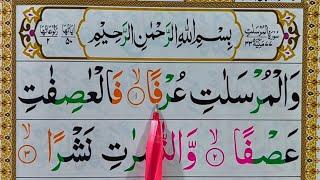 بِسْمِ اللّٰهِ الرَّحْمٰنِ الرَّحِيْمِ
وَالْمُرْسَلٰتِ عُرْفًا ۙ﴿۱﴾ فَالْعٰصِفٰتِ
عَصْفًا ۙ﴿۲﴾ وَّالنّٰشِرٰتِ نَشْرًا ۙ﴿۳﴾